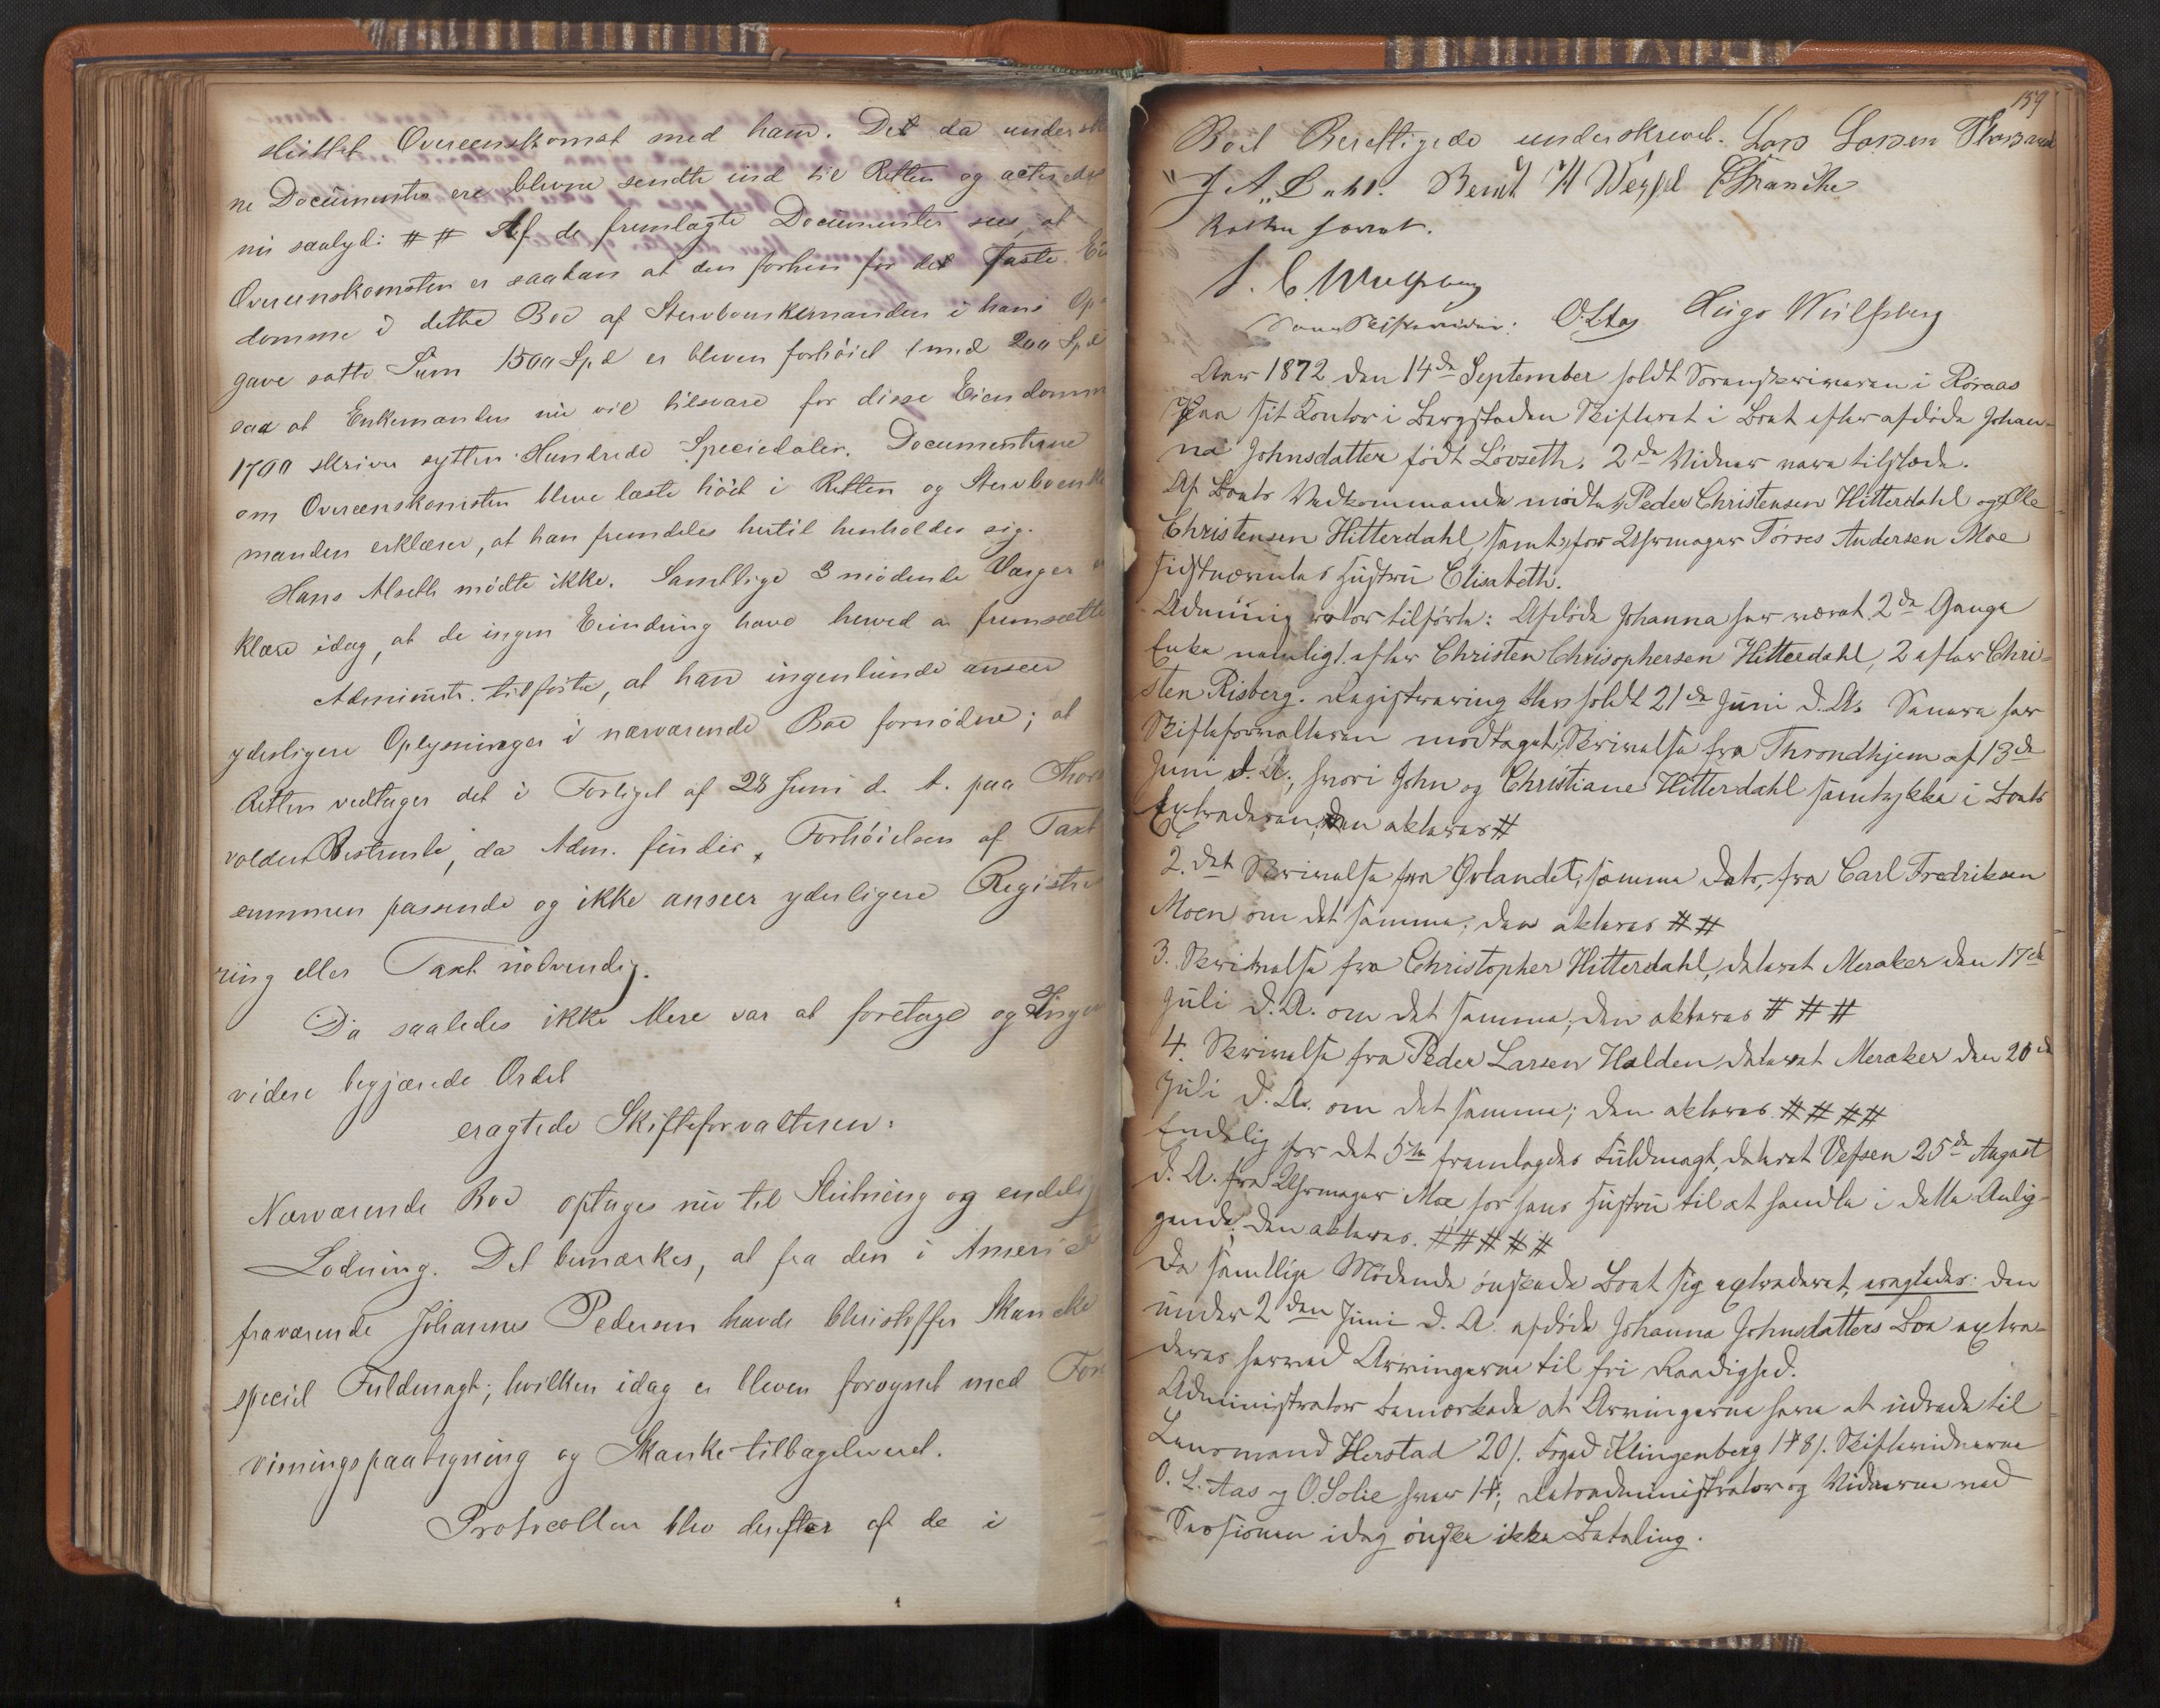 sluttet Overeenskomst med ham. Det da
ne Documenter ere blevne sendte ind til Retten og
nu saalyd: # # Af de fremlagte Documenter sees, at
Overeenskomsten er saadan at den forhen for det faste
domme i dette Boe af Stervboenkemanden i hans
gave satte Sum 1500 Spd er bleven forhöiet med 200 Spd
saa at Enkemanden nu vil tilsvare for disse Eiendomme
1700 skriver sytten Hundrede Speciedaler. Documenterne
om Overeenskomsten bleve læste höit i Retten og
manden erklærer, at han fremdeles hertil henholder sig.
Hans Alseth mödte ikke. Samtlige 3 mödende Værger
klære idag, at de ingen Erindring have herved at fremsætte
Administr. tilförte, at han ingenlunde anseer
yderligere Oplysninger i nærværende Boe fornödne; at
Retten vedtager det i Forliget af 28 Juni d. A. paa
voldene Bestemte, da Adm. finder, Forhöielsen af Taxt
summen passende og ikke anseer yderligere Registre
ring eller Taxt nödvendig.
Da saaledes ikke Mere var at foretage og Ingen
videre begjærede Ordet
eragtede Skifteforvalteren:
Nærværende Boe optages nu til Slutning og endelig
Lodning. Det bemærkes, at fra den i America
fraværende Johannes Pedersen havde Christoffer Skancke
speciel Fuldmagt; hvilken idag er bleven forsynet med For
visningspaategning og Skanke tilbageleveret.
Protocollen blev derefter af de i
159
Boet Berettigede underskrevet. Lars Larsen
J A Dahl. Bernt H Wessel Skancke
Retten hævet.
S. C. Wulfsberg
Som Skiftevidner: O. L. Aas Hugo Wulfsberg
Aar 1872 den 14de September holdt Sorenskriveren i Röraas
paa sit Kontor i Bergstaden Skifteret i Boet efter afdöde Johan-
na Johnsdatter födt Lövseth. 2de Vidner vare tilstede.
Af Boets Vedkommende mödte Peder Christensen Hitterdahl og Ole
Christensen Hitterdahl, samt for Uhrmager Törres Andersen Moe
sidstnævntes Hustru Elisabeth.
Administrator tilförte: Afdöde Johanna har været 2de Gange
Enke nemlig 1. efter Christen Chrisophersen Hitterdahl, 2 efter Chri-
sten Risberg. Registrering blev holdt 21de Juni d. A. Senere har
Skifteforvalteren modtaget, Skrivelse fra Throndhjem af 13de
Juni d. A., hvori John og Christiane Hitterdahl samtykke i Boets
Extraderen, den akteres #
2. det Skrivelse fra Ørlandet, samme Dato, fra Carl Fredriksen
Moen om det samme; den akteres # #
3. Skrivelse fra Christopher Hitterdahl, dateret Meraker den 17de
Juli d. A. om det samme; den akteres # # #
4. Skrivelse fra Peder Larsen Halden, dateret Meraker den 20de
Juli d. A. om det samme; den akteres # # # #
Endelig for det 5te fremlagdes Fuldmagt, dateret Vefsen 25de August
d. A. fra Uhrmager Moe for hans Hustru til at handle i dette Anlig-
gende; den akteres. # # # # #
Da samtlige Mödende önskede Boet sig extraderet, eragtedes: den
under 2den Juni d. A. afdöde Johanna Johnsdatters Boe extra-
deres herved Arvingerne til fri Raadighed.
Administrator bemærkede at Arvingerne have at udrede til
Lensmand Herstad 20/. Foged Klingenberg 1# 8/. Skiftevidnerne
O. L. Aas og O. Solie hver 1#; Retsadministrator og Vidnerne ved
Sessionen idag önske ikke Betaling.